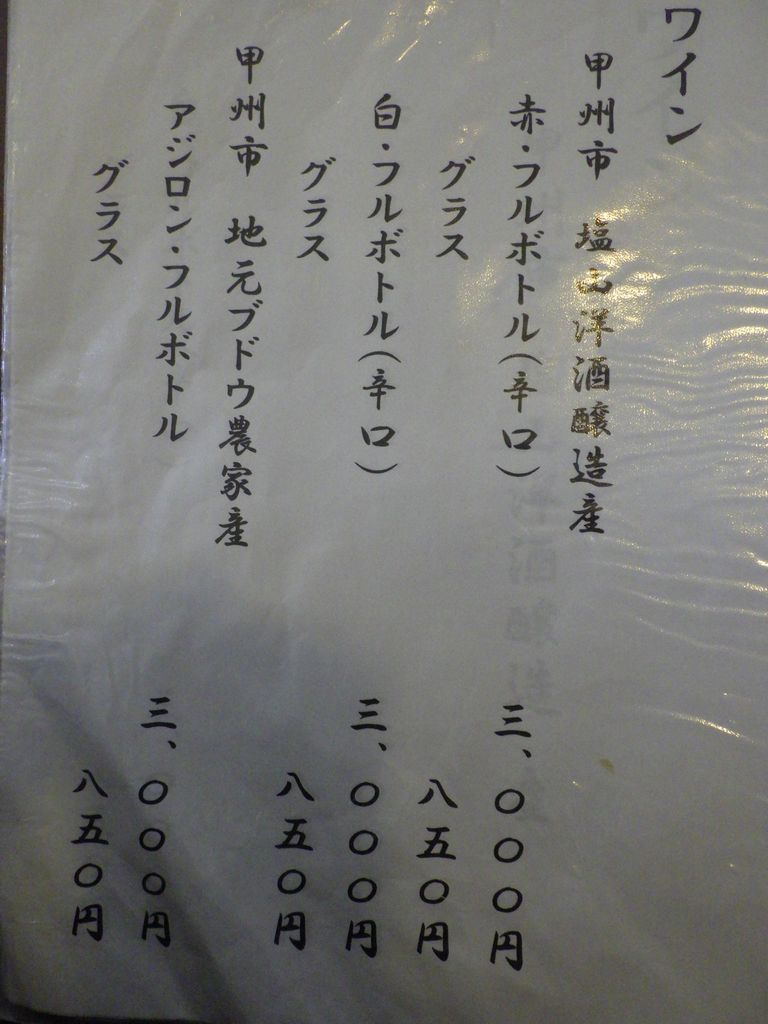 ワイン
甲州市 塩山洋酒醸造産
赤・フルボトル(辛口) 三、〇〇〇円
グラス 八五〇円
白・フルボトル(辛口) 三、〇〇〇円
グラス 八五〇円
甲州市 地元ブドウ農家産
アジロン・フルボトル 三、〇〇〇円
グラス 八五〇円